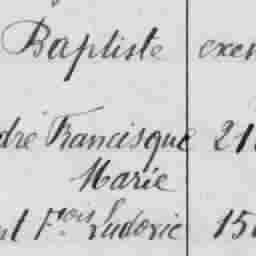 Baptiste exem
dré Francisque 21
Marie
nt F.ois Ludovic 15